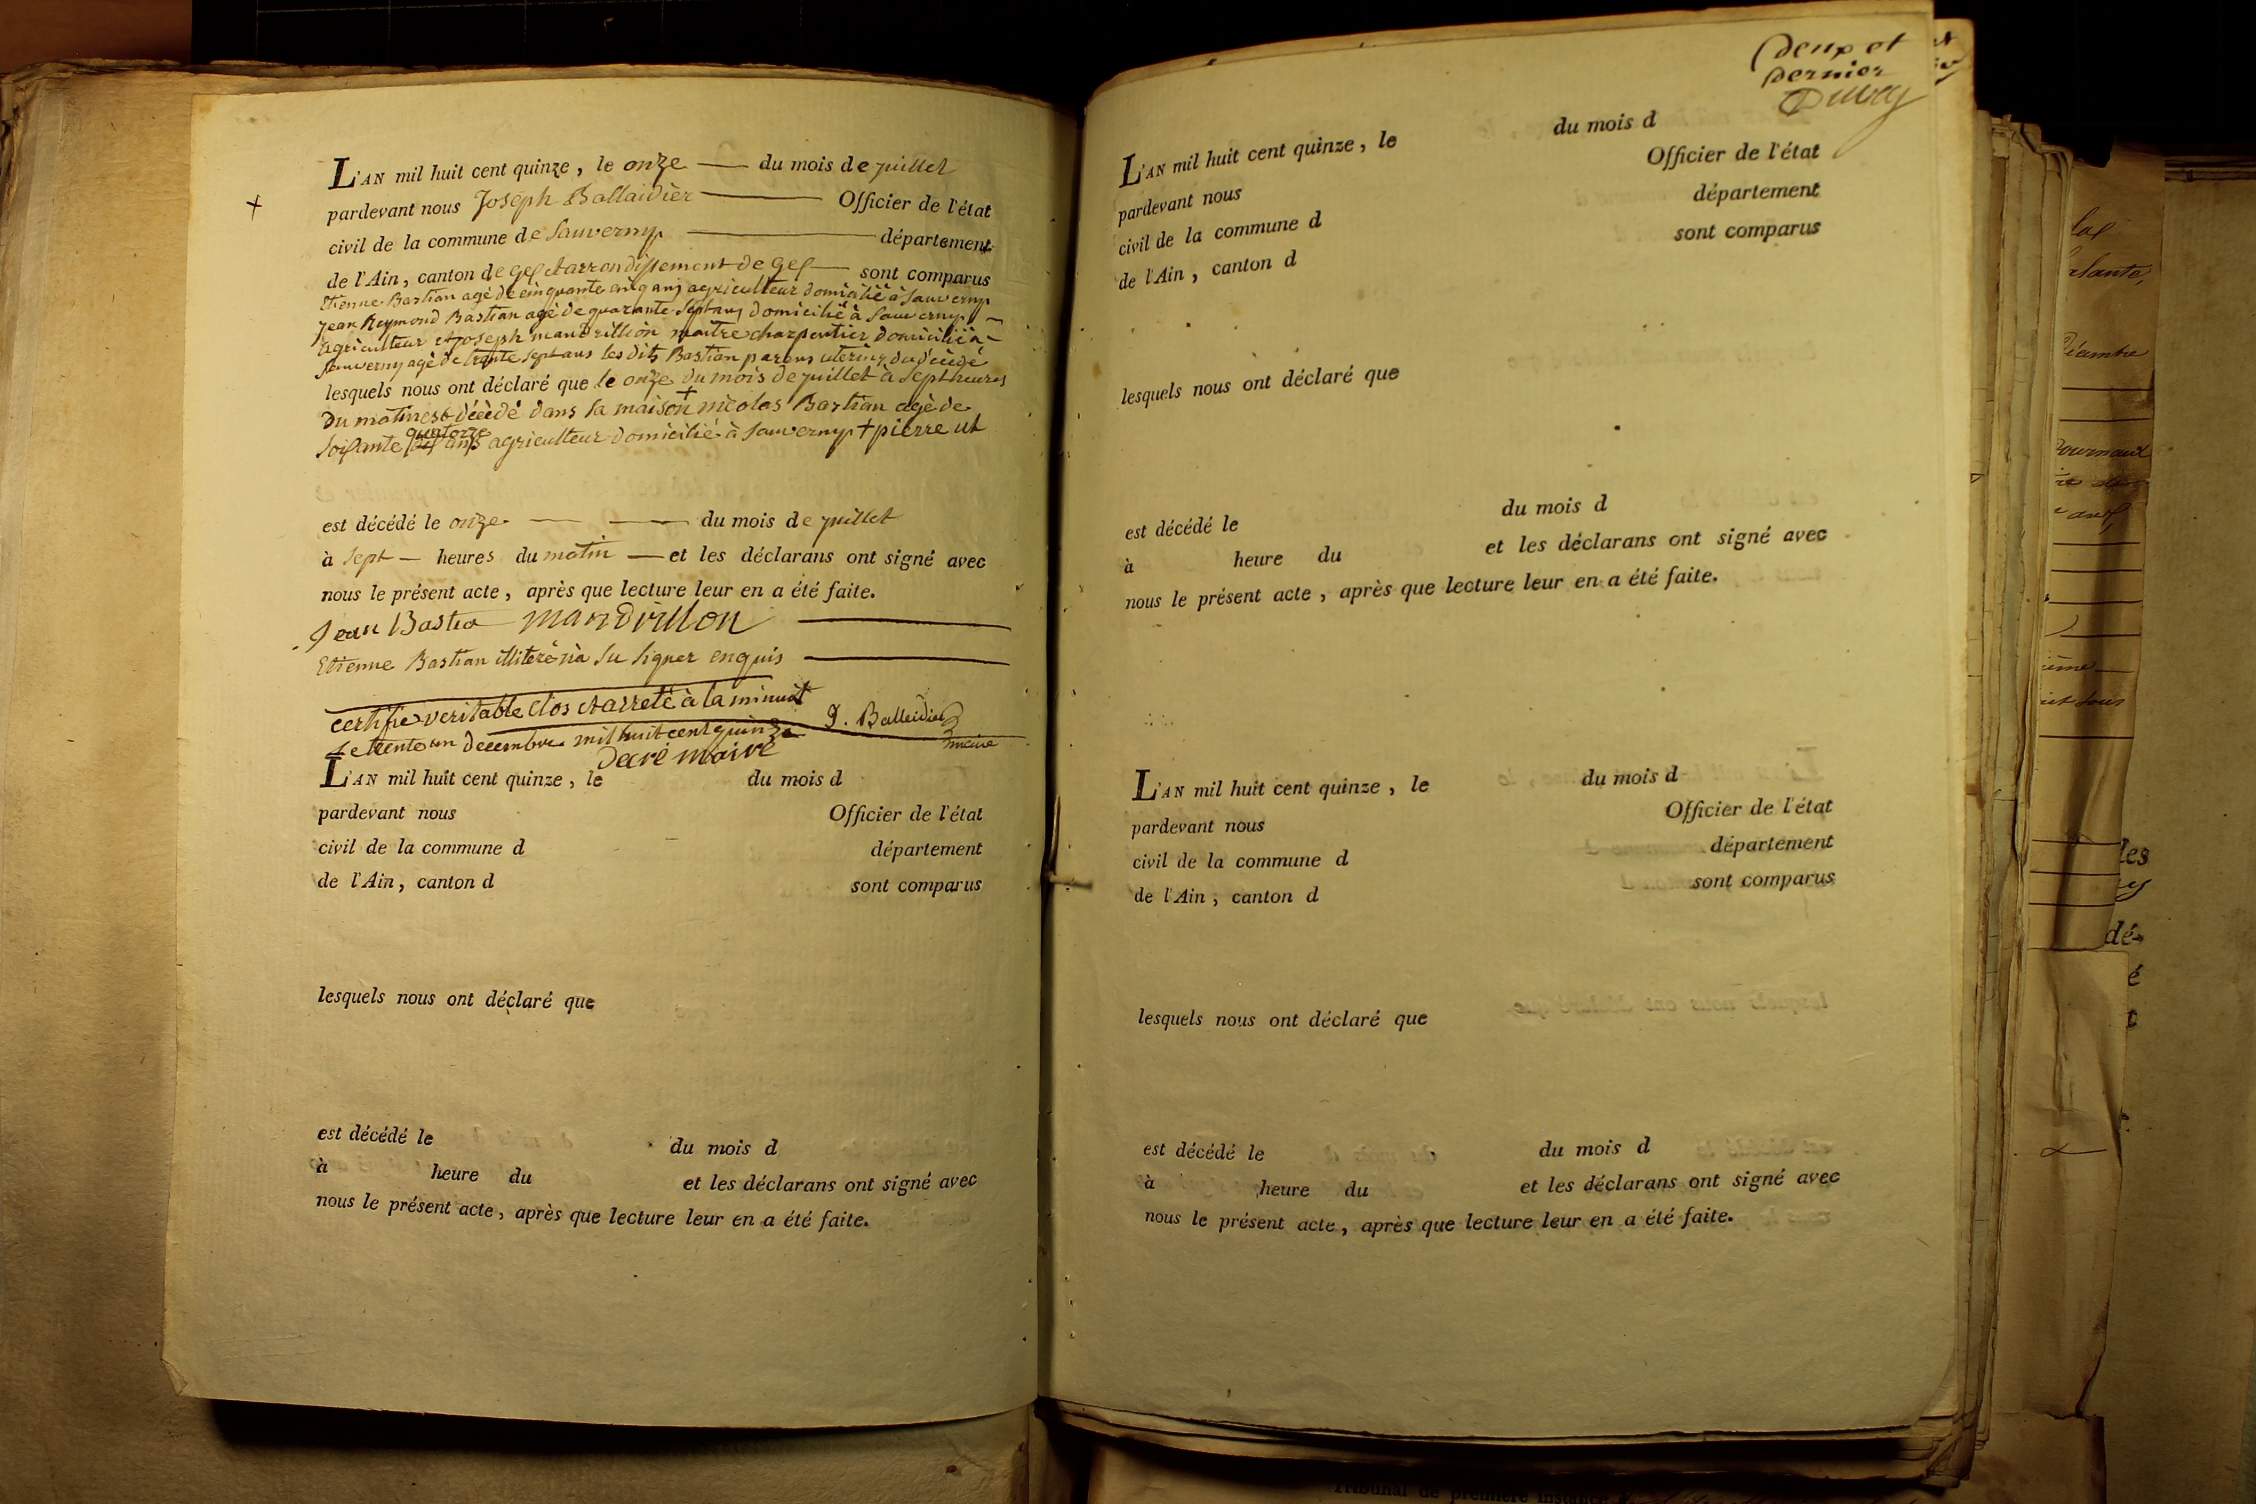 L'AN mil huit cent quinze, le onze du mois de juillet
pardevant nous Joseph Ballaidier Officier de l'état
civil de la commune de Sauverny département
de l'Ain, canton de gex et arrondissement de gex sont comparus
Etienne Bastian agé de cinquante cinq ans agriculteur domicilié à Sauverny
Jean Reymond Bastian agé de quarante sept ans domicilié à Sauverny
agriculteur et joseph mandrillion maitre charpentier domicilié à
Sauverny agé de trente sept ans les dits Bastian parens uterins du décédé
lesquels nous ont déclaré que le onze du mois de juillet à sept heures
du matin est décédé dans sa maison + nicolas Bastian agé de
soixante quatorze ans agriculteur domicilié à Sauverny + pierre
est décédé le onze du mois de juillet
à sept heures du matin et les déclarans ont signé avec
nous le présent acte, après que lecture leur en a été faite.
Jean Bastia mandrillon
Etienne Bastian illiteré n'a su signer enquis
certifie veritable Clos et arreté à la minuit
le trente un decembre mil huit cent quinze
J. Balleidier
maire
Decré maire
L'AN mil huit cent quinze, le du mois d
pardevant nous Officier de l'état
civil de la commune d département
de l'Ain, canton d sont comparus
lesquels nous ont déclaré que
est décédé le du mois d
à heure du et les déclarans ont signé avec
nous le présent acte, après que lecture leur en a été faite.
Deux et
dernier
L'AN mil huit cent quinze, le du mois d
pardevant nous Officier de l'état
civil de la commune d département
de l'Ain, canton d sont comparus
lesquels nous ont déclaré que
est décédé le du mois d
à heure du et les déclarans ont signé avec
nous le présent acte, après que lecture leur en a été faite.
L'AN mil huit cent quinze, le du mois d
pardevant nous Officier de l'état
civil de la commune d département
de l'Ain, canton d sont comparus
lesquels nous ont déclaré que
est décédé le du mois d
à heure du et les déclarans ont signé avec
nous le présent acte, après que lecture leur en a été faite.